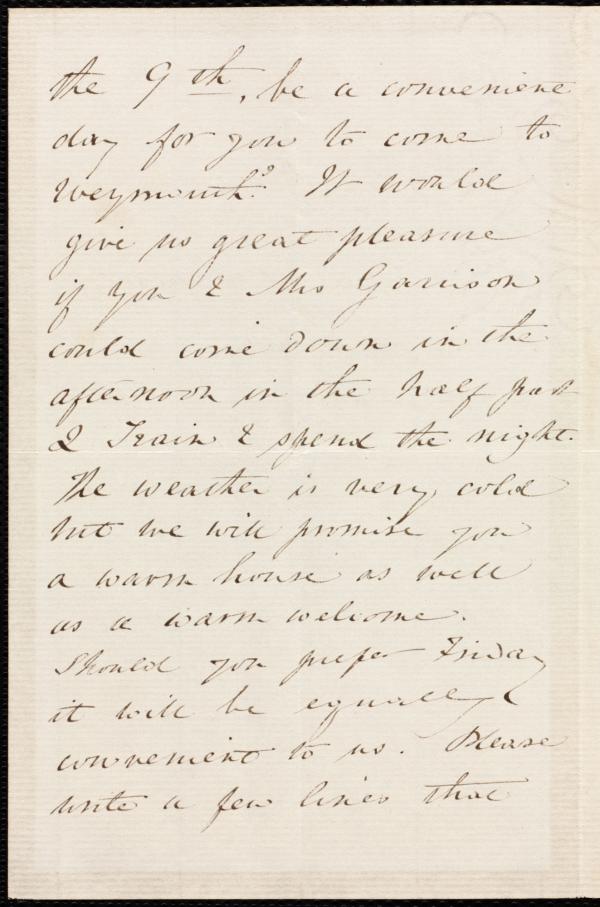 the 9th, be a convenient
day for you to come to
Weymouth? It would
give us great pleasure
if you & Mrs Garrison
could come down in the
afternoon in the half past
2 Train & spend the night.
The weather is very cold
but we will promise you
a warm house as well
as a warm welcome.
Should you prefer Friday
it will be equally
convenient to us. Please
write a few lines that